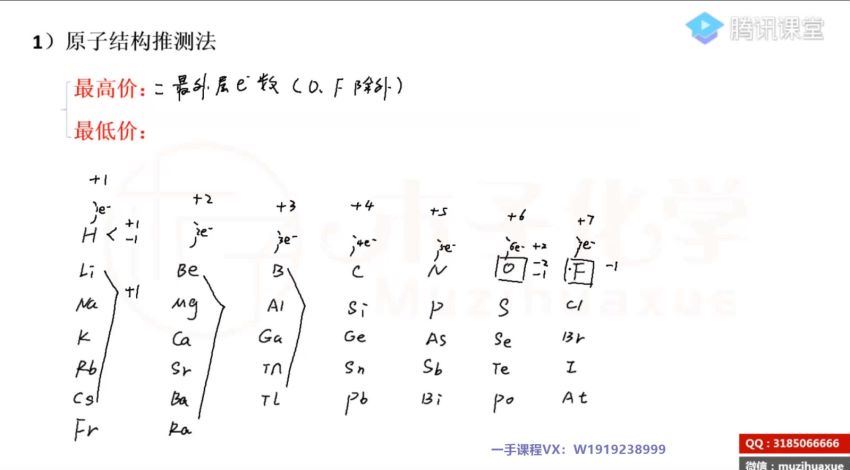 腾讯课堂
1）原子结构推测法
最高价：= 最外层e⁻数（O、F除外）
最低价：
+1 +2 +3 +4 +5 +6 +7
1e⁻ 2e⁻ 3e⁻ 4e⁻ 5e⁻ 6e⁻ 7e⁻
H < +1 -1
Li Be B C N O +2 -2 -1 F -1
+1
Na Mg Al Si P S Cl
K Ca Ga Ge As Se Br
Rb Sr In Sn Sb Te I
Cs Ba Tl Pb Bi Po At
Fr Ra
木子化学
Muzihuaxue
一手课程VX：W1919238999
QQ：3185066666
微信：muzihuaxue